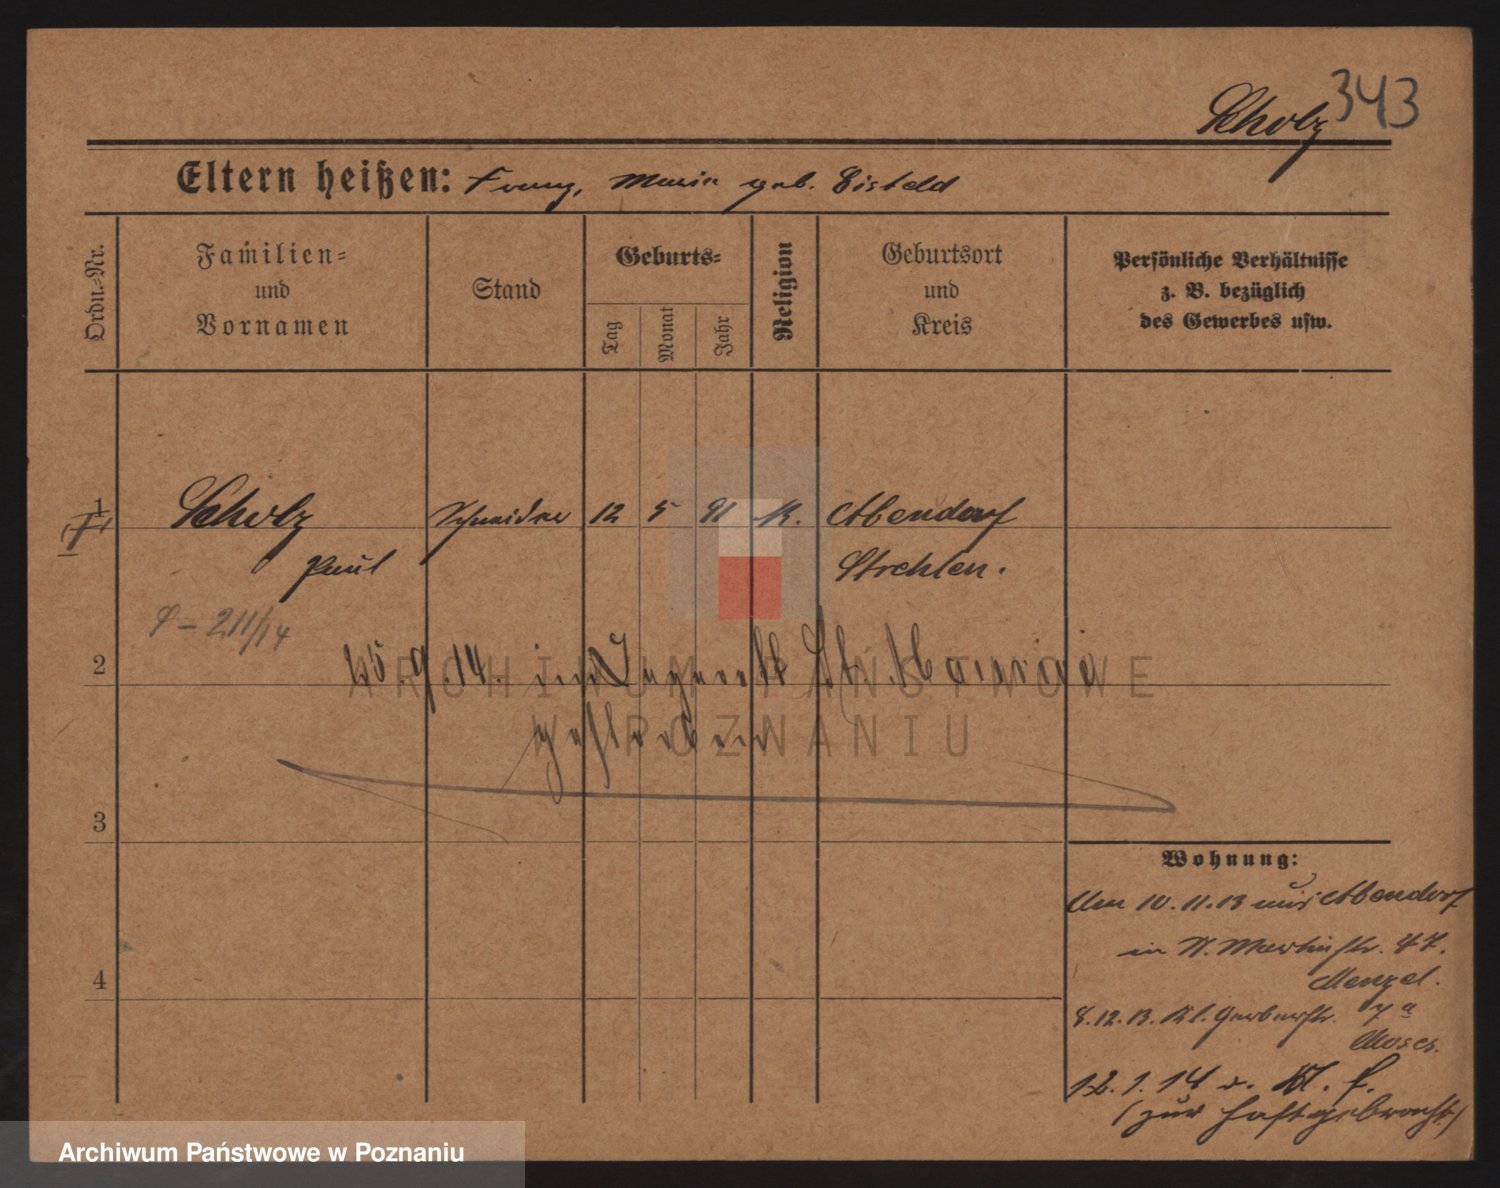 343
Scholz
Eltern heißen: Franz, Marie geb. Eisfeld
Ordn.-Nr.
Familien-
und
Vornamen
Stand
Geburts-
Tag
Monat
Jahr
Religion
Geburtsort
und
Kreis
Persönliche Verhältnisse
z. B. bezüglich
des Gewerbes usw.
1
Scholz Schneider 12 5 91 K. Abendorf
Paul Strehlen.
211/14
2
25.9.14. im St.
gestorben
3
4
Wohnung:
Am 10.11.13 aus Abendorf
in St. Martinstr. 47.
Menzel.
8.12.13. Kl. Gerberstr. 7a
Moses.
12.1.14 v.
(zur Haft gebracht)
ARCHIWUM PAŃSTWOWE
W POZNANIU
Archiwum Państwowe w Poznaniu